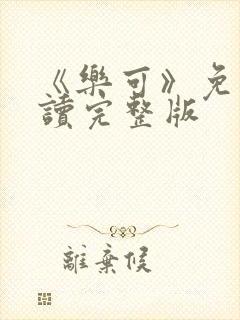 《樂可》免
讀完整版
離棄候